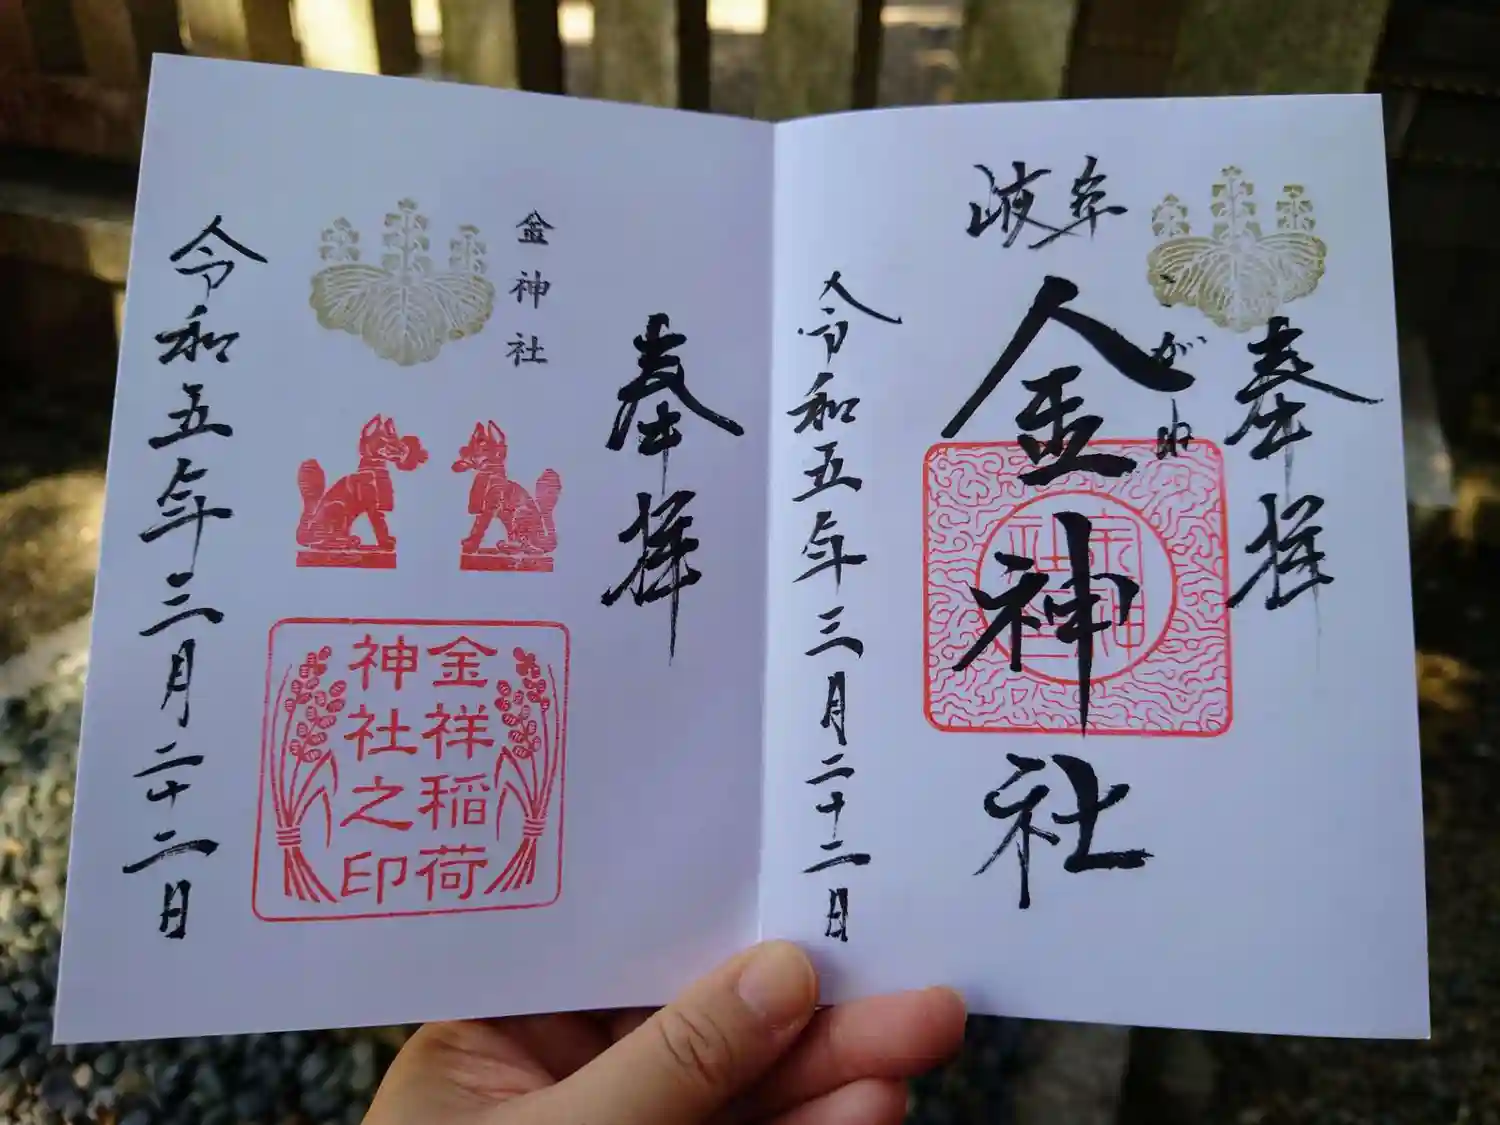 奉拝
岐阜
こがね
金神社
令和五年三月二十二日
奉拝
金神社
金祥稲荷
神社之印
令和五年三月二十二日